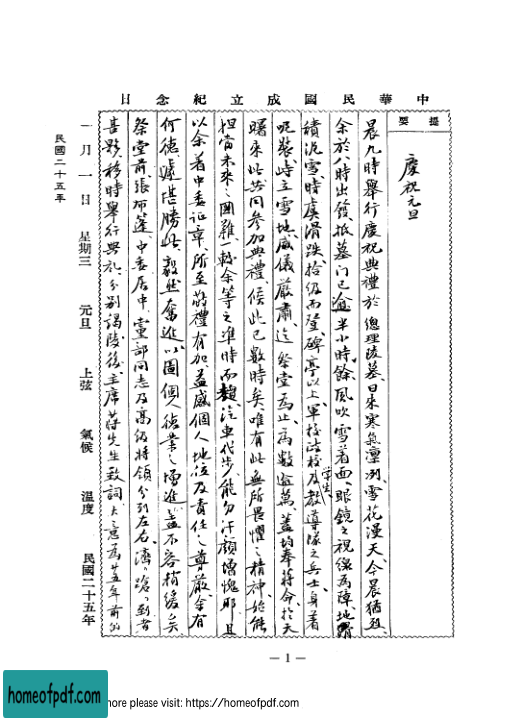 中華民國成立紀念日
提要
慶祝元旦
晨九時舉行慶祝典禮於總理陵墓、日來寒氣凜冽、雪花漫天今晨猶烈、
余於八時出發、抵墓門已逾半小時餘、風吹雪着面、眼鏡之視線為障、地滑
積泥雪、時虞滑跌、拾級而登、碑亭以上、軍校政校及教導隊之兵士學生、身著
呢裝、峙立雪地、威儀嚴肅、迄祭堂為止、為數逾萬、蓋均奉蔣命、於天
曙來此共同參加典禮、候此已數時矣、唯有此無所畏懼之精神、始能
担當未來之國難、一較余等之準時而赴、汽車代步、能勿汗顏增愧耶、且
以余着中委証章、所至敬禮有加、益感個人地位及責任之尊嚴、余有
何德、堪勝此、毅然奮進、以圖個人德業之增進、蓋不容稍緩矣、
祭堂前、張布蓬、中委居中、黨部同志及高級將領分列左右、濟濟蹌蹌、到者
甚夥、移時舉行典禮、分別謁陵後、主席蔣先生致詞、大意為廿五年前的
一月一日 星期三 元旦 上弦 氣候 溫度 民國二十五年
民國二十五年
— 1 —
homeofpdf.com
more please visit: https://homeofpdf.com